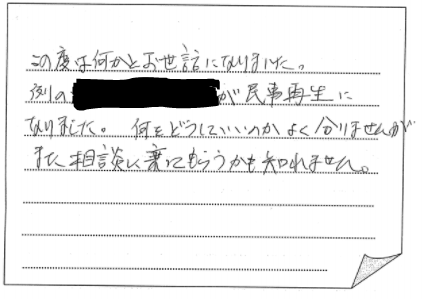 この度は何かとお世話になりました。
例の が民事再生に
なりました。何をどうしていいのかよく分りませんが
また相談に乗ってもらうかも知れません。